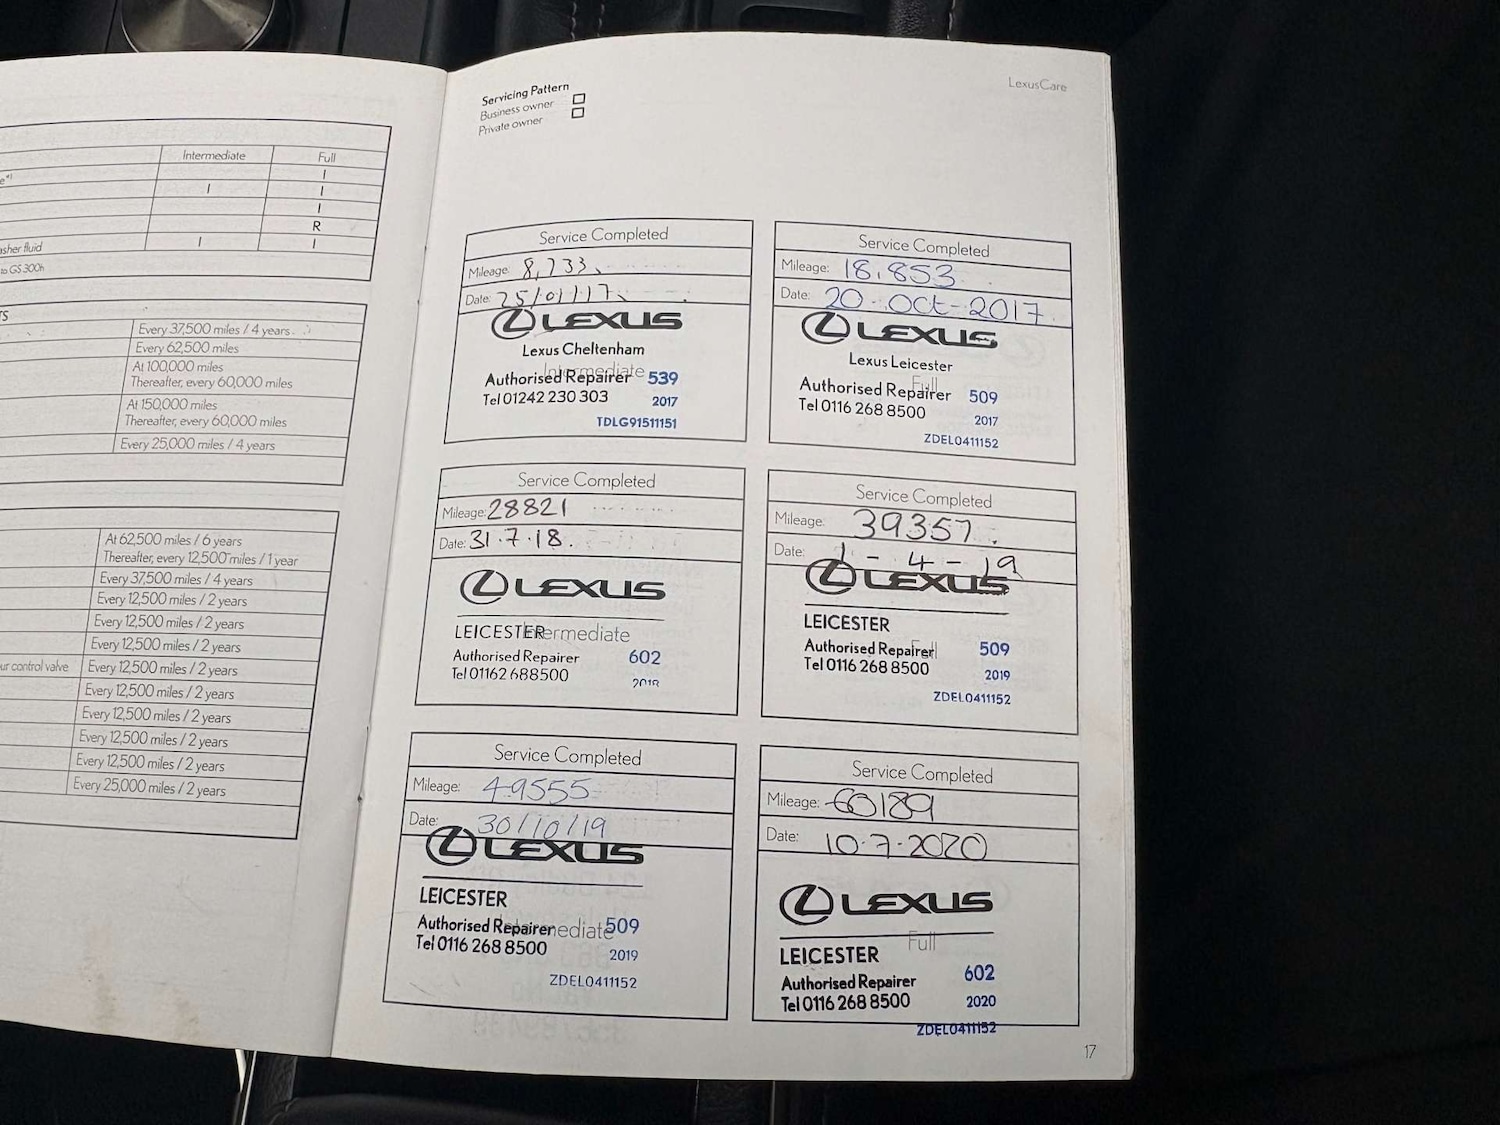 Intermediate Full
I
e*¹
I I
I
R
asher fluid I I
to GS 300h
TS
Every 37,500 miles / 4 years
Every 62,500 miles
At 100,000 miles
Thereafter, every 60,000 miles
At 150,000 miles
Thereafter, every 60,000 miles
Every 25,000 miles / 4 years
At 62,500 miles / 6 years
Thereafter, every 12,500 miles / 1 year
Every 37,500 miles / 4 years
Every 12,500 miles / 2 years
Every 12,500 miles / 2 years
Every 12,500 miles / 2 years
ur control valve Every 12,500 miles / 2 years
Every 12,500 miles / 2 years
Every 12,500 miles / 2 years
Every 12,500 miles / 2 years
Every 12,500 miles / 2 years
Every 25,000 miles / 2 years
LexusCare
Servicing Pattern
Business owner
Private owner
Service Completed
Mileage: 8,733
Date: 25/01/17
LEXUS
Lexus Cheltenham
Intermediate
Authorised Repairer 539
Tel 01242 230 303 2017
TDLG91511151
Service Completed
Mileage: 18.853
Date: 20-Oct-2017
LEXUS
Lexus Leicester
Full
Authorised Repairer 509
Tel 0116 268 8500 2017
ZDEL0411152
Service Completed
Mileage: 28821
Date: 31.7.18.
LEXUS
LEICESTER Intermediate
Authorised Repairer 602
Tel 01162 688500 2018
Service Completed
Mileage: 39357.
Date: 1-4-19
LEXUS
LEICESTER
Authorised Repairer Full 509
Tel 0116 268 8500 2019
ZDEL0411152
Service Completed
Mileage: 49555
Date: 30/10/19
LEXUS
LEICESTER
Authorised Repairer Intermediate 509
Tel 0116 268 8500 2019
ZDEL0411152
Service Completed
Mileage: 60189
Date: 10.7.2020
LEXUS
Full
LEICESTER
Authorised Repairer 602
Tel 0116 268 8500 2020
ZDEL0411152
17